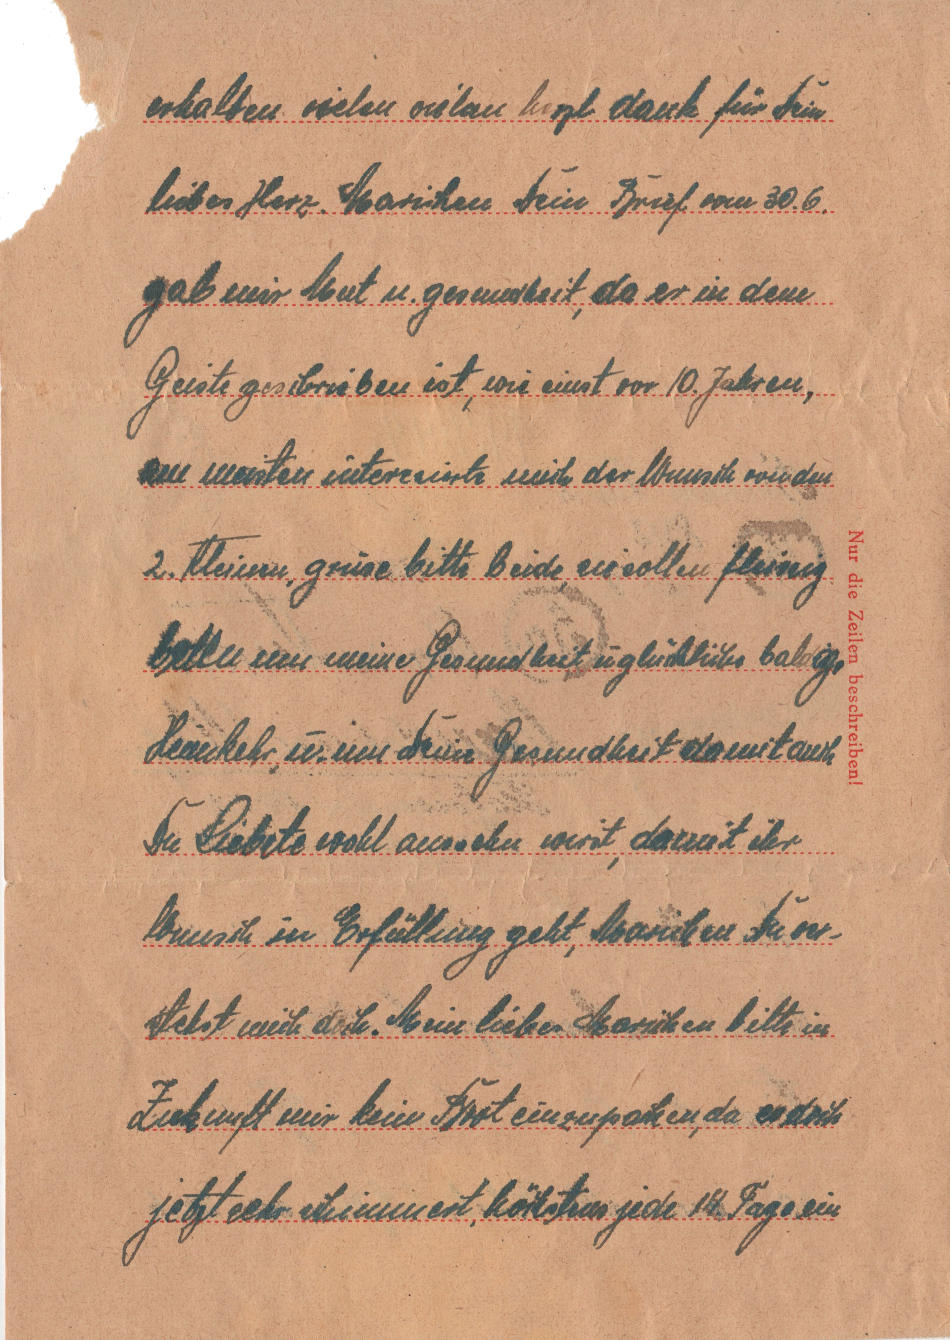 erhalten. vielen vielen herzl dank für Dein
liebes Herz. Mariechen Dein Brief. vom 30.6.
gab mir Mut u. gesundheit, da er in dem
Geiste geschrieben ist, wie einst vor 10. Jahren,
am meisten interesierte mich der Wunsch von den
2. Kleinen, grüse bitte beide, sie sollen fleisig
beten um meine Gesundheit u glückliche baldige
Heimkehr, u. um Deine Gesundheit damit auch
Du Liebste wohl aussehn wirst, damit ihr
Wunsch in Erfüllung geht, Mariechen Du ver-
stehst mich doch. Mein liebes Mariechen bitte in
Zukunft mir kein Brot einzupacken, da es doch
jetzt sehr schimmert, höchstens jede 14 Tage ein
Nur die Zeilen beschreiben!